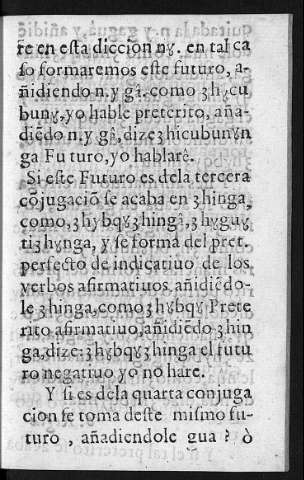 r̃e en esta diccion nɣ. en tal ca
so formaremos este futuro, a-
ñidiendo n.y gâ. como ʒhɣcu
bunɣ, yo hable preterito, aña-
diẽdo n, y gâ, dize ʒhicubunɣn
ga Futuro, yo hablarê.
Si este Futuro es dela tercera
cõjugaciõ se acaba en ʒhinga,
como, ʒhɣbqɣʒhingâ, ʒhɣguɣ
tiʒhɣnga, y se forma del pret.
perfecto de indicatiuo de los
verbos afirmatiuos, añidiẽdo-
le ʒhinga, como ʒhɣbqɣ Prete
rito afirmatiuo, añidiẽdo ʒhin
ga, dize: ʒhɣbqɣʒhinga el futu
ro negatiuo yo no hare.
Y si es dela quarta conjuga
cion se toma deste mismo fu-
turo, añadiendole gua? ò